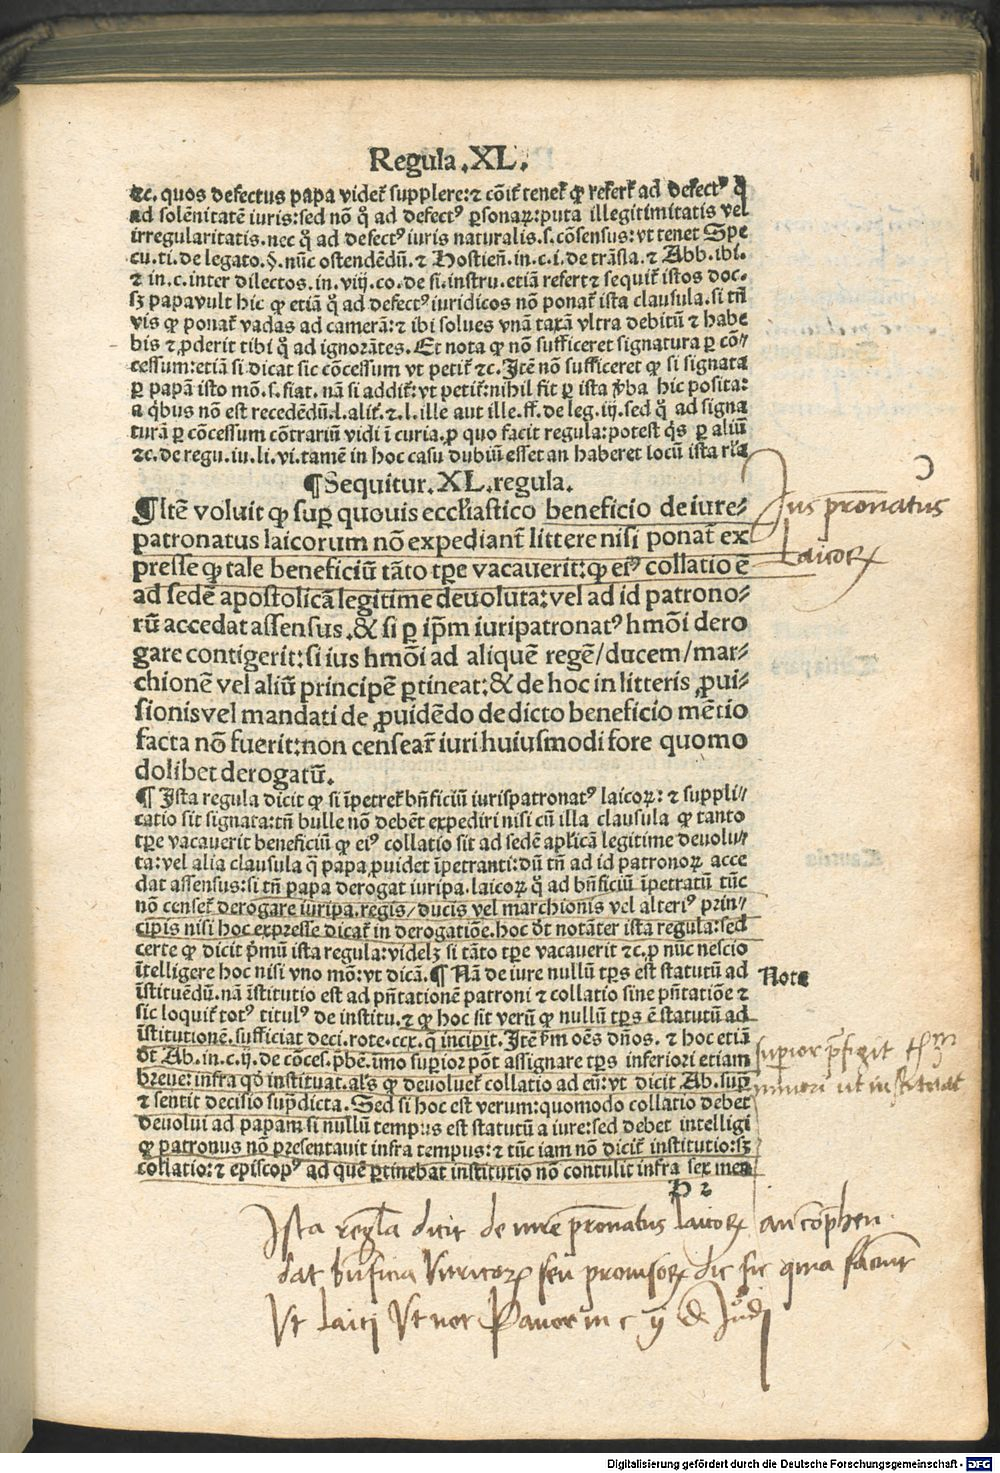 Regula.XL.
⁊c. quos defectus papa videt᷑ supplere:⁊ cōit᷑ tenet᷑ ꝙ refert᷑ ad defectꝰ q̊
ad solēnitatē iuris:sed nō q̊ ad defectꝰ ꝑsonaꝝ:puta illegitimitatis vel
irregularitatis.nec q̊ ad defectꝰ iuris naturalis.s.cōsensus:vt tenet Spe
cu.ti.de legato.§.nūc ostendēdū.⁊ Hostien̄.in.c.i.de trāsla.⁊ Abb.ibi.
⁊ in.c.inter dilectos.in.viij.co.de fi.instru.etiā refert⁊ sequit᷑ istos doc.
sꝫ papavult hic ꝙ etiā q̊ ad defectꝰ iuridicos nō ponat᷑ ista clausula.si tn̄
vis ꝙ ponat᷑ vadas ad camerā:⁊ ibi solues vnā taxā vltra debitū ⁊ habe
bis ⁊ ꝓderit tibi q̊ ad ignorātes.Et nota ꝙ nō sufficeret signatura ꝑ cō-
cessum:etiā si dicat sic cōcessum vt petit᷑ ⁊c.Itē nō sufficeret ꝙ si signata
ꝑ papā isto mō.s.fiat.nā si addit᷑:vt petit᷑:nihil fit ꝑ ista v̓ba hic posita:
a q̇bus nō est recedēdū.l.alit᷑.⁊.l.ille aut ille.ff.de leg.iij.sed q̊ ad signa
turā ꝑ cōcessum cōtrariū vidi ī curia.ꝓ quo facit regula:potest q̇s ꝑ aliū
⁊c.de regu.iu.li.vi.tamē in hoc casu dubiū esset an haberet locū ista rl̓a
¶Sequitur.XL.regula.
¶Itē voluit ꝙ suꝑ quouis eccl̓iastico beneficio de iure-
patronatus laicorum nō expediant᷑ littere nisi ponat᷑ ex
presse ꝙ tale beneficiū tāto tꝑe vacauerit:ꝙ eiꝰ collatio ē
ad sedē apostolicā legitime deuoluta:vel ad id patrono-
rū accedat assensus.& si ꝑ ip̄m iuripatronatꝰ hmōi dero
gare contigerit:si ius hmōi ad aliquē regē/ducem/mar-
chionē vel aliū principē ꝑtineat:& de hoc in litteris ꝓui-
sionis vel mandati de ꝓuidēdo de dicto beneficio mētio
facta nō fuerit:non censeat᷑ iuri huiusmodi fore quomo
dolibet derogatū.
¶ Ista regula dicit ꝙ si īpetret᷑ bn̄ficiū iurispatronatꝰ laicoꝝ: ⁊ suppli-
catio sit signata:tn̄ bulle nō debēt expediri nisi cū illa clausula ꝙ tanto
tꝑe vacauerit beneficiū ꝙ eiꝰ collatio sit ad sedē apl̓icā legitime deuolu-
ta:vel alia clausula q̄ papa ꝓuidet īpetranti:dū tn̄ ad id patronoꝝ acce
dat assensus:si tn̄ papa derogat iuripa.laicoꝝ q̊ ad bn̄ficiū īpetratū tūc
nō censet᷑ derogare iuripa.regis/ducis vel marchionis vel alteriꝰ prin-
cipis nisi hoc expresse dicat᷑ in derogatiōe.hoc dt̄ notāter ista regula:sed
certe ꝙ dicit p̄mū ista regula:videlꝫ si tāto tꝑe vacauerit ⁊c.ꝓ nūc nescio
ītelligere hoc nisi vno mō:vt dicā.¶ Nā de iure nullū tꝑs est statutū ad
īstituēdū.nā īstitutio est ad pn̄tationē patroni ⁊ collatio sine pn̄tatiōe ⁊
sic loquit᷑ totꝰ titulꝰ de institu.⁊ ꝙ hoc sit verū ꝙ nullū tꝑs ē statutū ad
īstitutionē.sufficiat deci.rote.ccx.q̄ incipit.Itē fm oēs dn̄os.⁊ hoc etiā
dt̄ Ab.in.c.ij.de cōces.p̄bē.īmo suꝑior pōt assignare tꝑs inferiori etiam
breue:infra qd̓ instituat.al̓s ꝙ deuoluet᷑ collatio ad eū:vt dicit Ab.supͣ
⁊ sentit decisio sup̄dicta.Sed si hoc est verum:quomodo collatio debet
deuolui ad papam si nullū tempus est statutū a iure:sed debet intelligi
ꝙ patronus nō presentauit infra tempus:⁊ tūc iam nō dicit᷑ institutio:sꝫ
collatio:⁊ episcopꝰ ad quē ꝑtinebat institutio nō contulit infra sex men
D 2
Ius pronatus
Laicoꝝ
Nota
superior p̄figit
minori ut instituat
Ista regl̄a dicit de iure pronatus Laicoꝝ an cōp̄hen
dat bn̄ficia Vitricoꝝ seu prouisoꝝ dic sic quia faciūt
Vt laici Vt not Panor in c ij de Jud
Digitalisierung gefördert durch die Deutsche Forschungsgemeinschaft - DFG